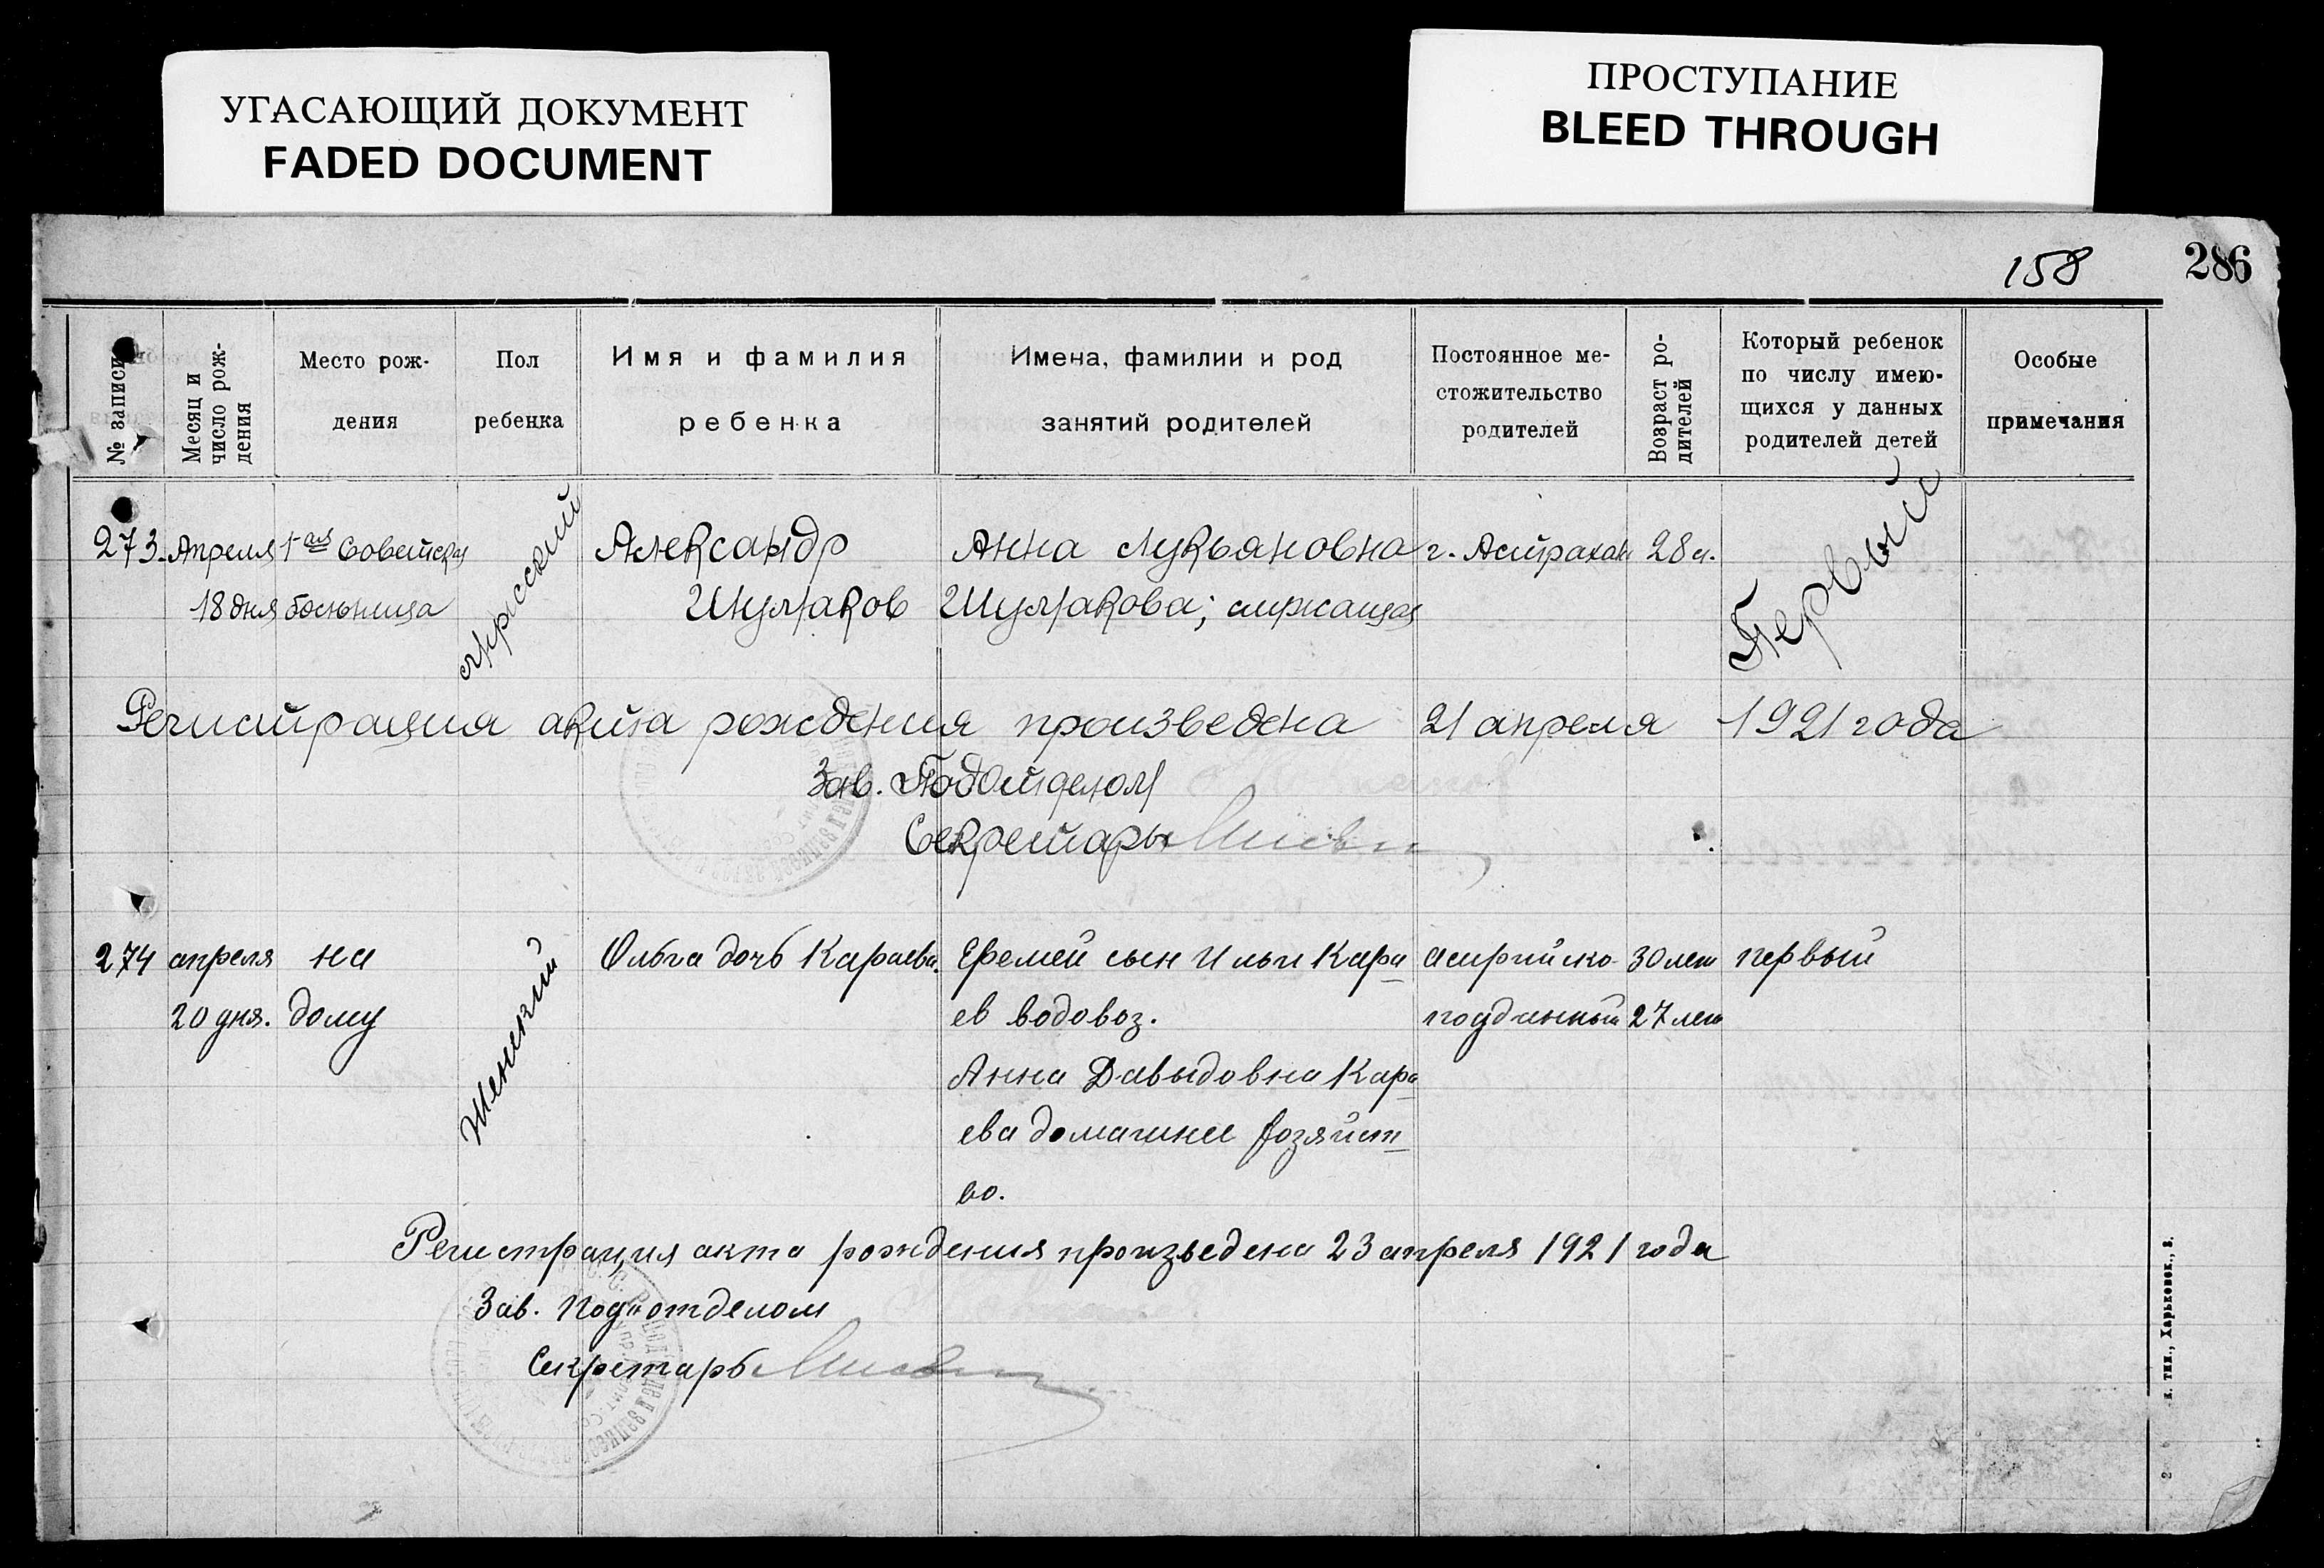 УГАСАЮЩИЙ ДОКУМЕНТ
FADED DOCUMENT
ПРОСТУПАНИЕ
BLEED THROUGH
158
286
№ записи
Месяц и число рождения
Место рождения
Пол ребенка
Имя и фамилия ребенка
Имена, фамилии и род занятий родителей
Постоянное местожительство родителей
Возраст родителей
Который ребенок по числу имеющихся у данных родителей детей
Особые примечания
273. Апреля 1ая Советская мужской Александр Анна Лукьяновна г. Астрахань 28 л. Первый
18 дня больница Шулпаков Шулпакова; служащая
Регистрация акта рождения произведена 21 апреля 1921 года
Зав. Подотделом
Секретарь
274 апреля на Женский Ольга дочь Караева. Ефемей сын Ильи Кара асирийско- 30 лет первый
20 дня. дому ев водовоз. подданный 27 лет
Анна Давыдовна Кара
ева домашнее хозяйст
во.
Регистрация акта рождения произведена 23 апреля 1921 года
Зав. Под"отделом
Секретарь
тип., Харьковск., 3.